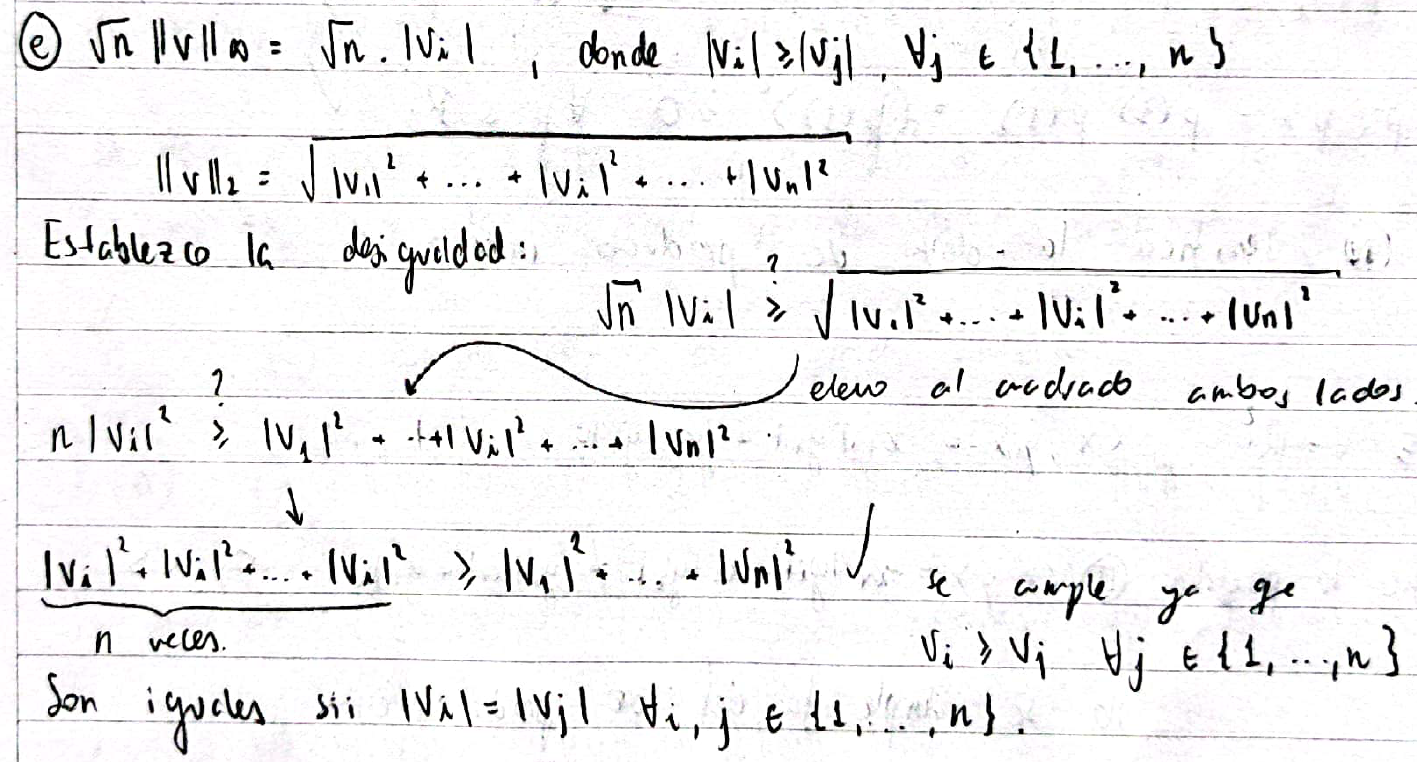 ⓔ √n ||v||∞ = √n . |Vi| , donde |Vi| ≥ |Vj| , ∀j ∈ {1, ..., n}
||v||₂ = √(|V₁|² + ... + |Vi|² + ... + |Vn|²)
Establezco la desigualdad:
√n |Vi| ≥? √(|V₁|² + ... + |Vi|² + ... + |Vn|²)
elevo al cuadrado ambos lados.
n |Vi|² ≥? |V₁|² + ... + |Vi|² + ... + |Vn|²
↓
|Vi|² + |Vi|² + ... + |Vi|² ≥ |V₁|² + ... + |Vn|² ✓ se cumple ya qe
n veces. Vi ≥ Vj ∀j ∈ {1, ..., n}
Son iguales sii |Vi| = |Vj| ∀i, j ∈ {1, ..., n}.